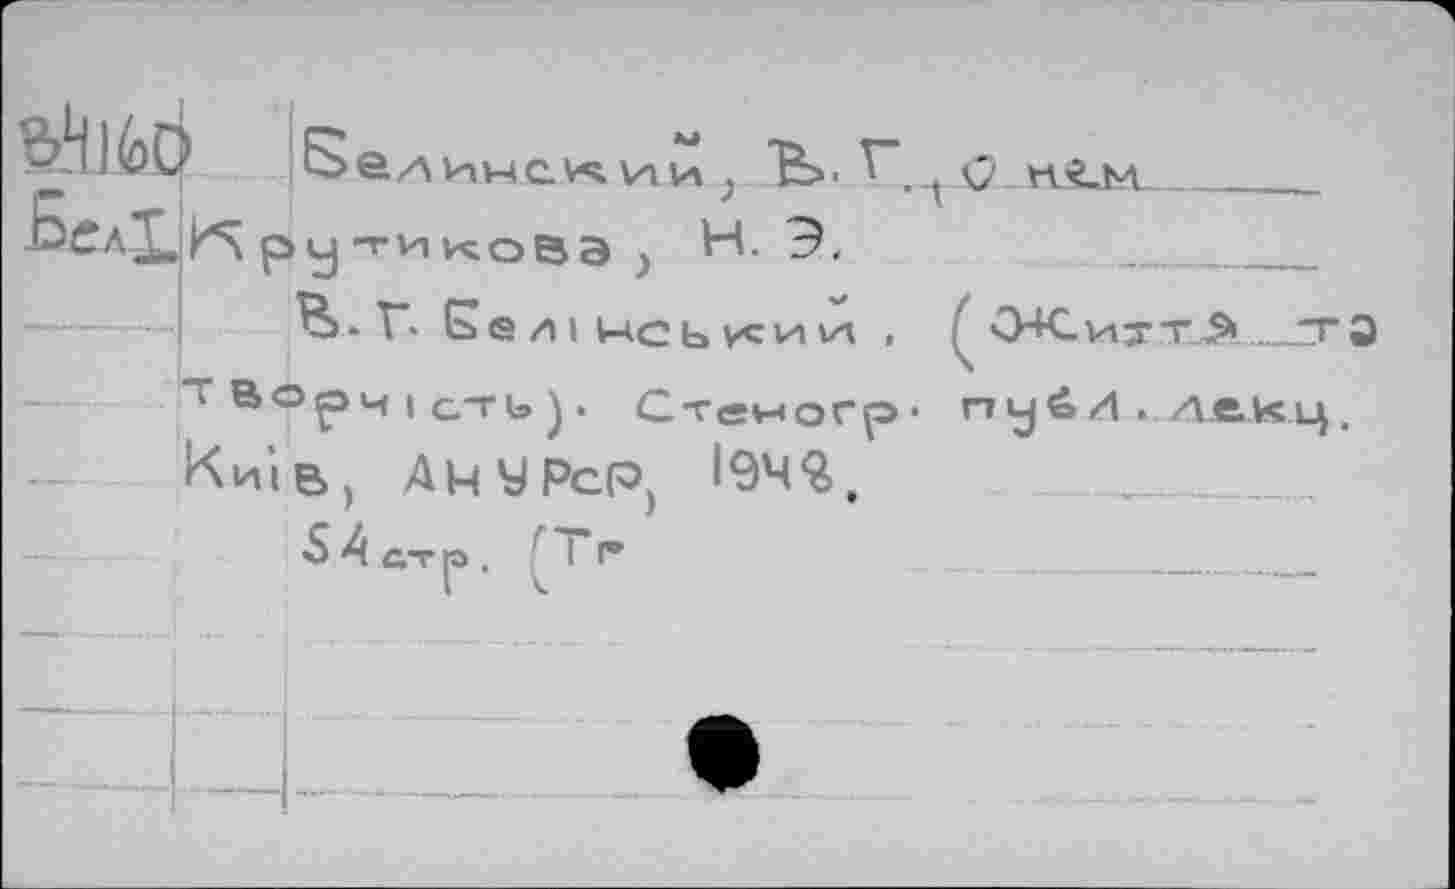 Белинский, В. Г., О нем
БелI Крутикова, Н. Э.
В. Г. Белінський. (Життя та
творчість). Стеногр. публ. лекц.
Київ, АН УРСР, 1948.
54 стр.